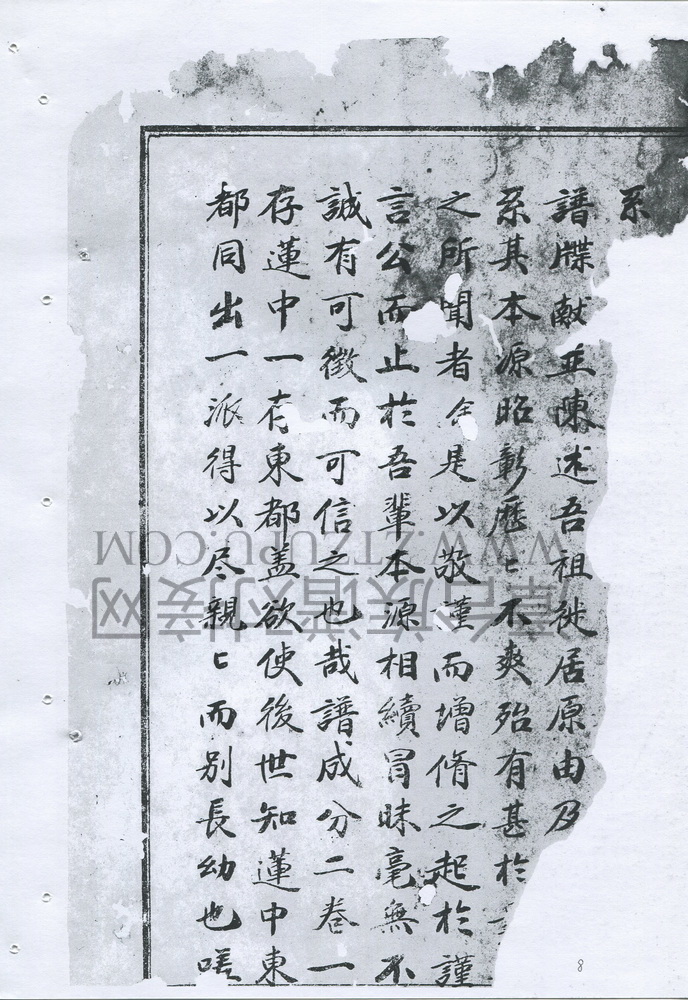 系
譜牒献並陳述吾祖徙居原由及
系其本源昭彰歷〻不爽殆有甚於
之所聞者是以敬謹而增脩之起於謹
言公而止於吾輩本源相續冒昧毫無不
誠有可徵而可信之也哉譜成分二卷一
存蓮中一存東都盖欲使後世知蓮中東
都同出一派得以尽親〻而别長幼也嗟
WWW.ZTZUPU.COM
8